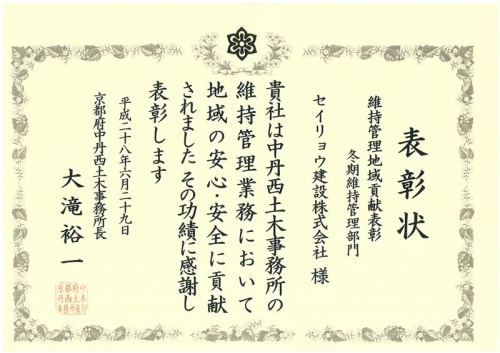 表彰状
維持管理地域貢献表彰
冬期維持管理部門
セイリョウ建設株式会社 様
貴社は中丹西土木事務所の
維持管理業務において
地域の安心・安全に貢献
されました その功績に感謝し
表彰します
平成二十八年六月二十九日
京都府中丹西土木事務所長
大滝裕一